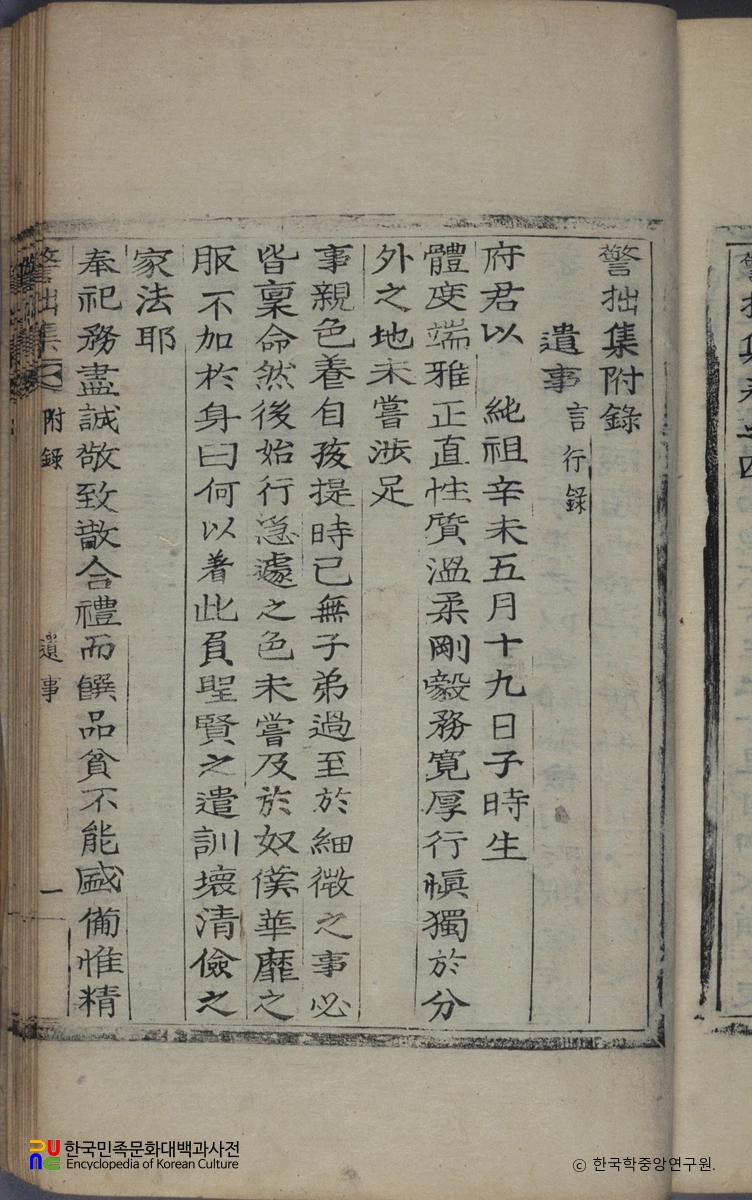 警拙集附錄
遺事 言行錄
府君以 純祖辛未五月十九日子時生
體度端雅正直性質溫柔剛毅務寬厚行愼獨於分
外之地未嘗涉足
事親色養自孩提時已無子弟過至於細微之事必
皆稟命然後始行急遽之色未嘗及於奴僕華靡之
服不加於身曰何以著此負聖賢之遺訓壞清儉之
家法耶
奉祀務盡誠敬致散合禮而饌品貧不能盛備惟精
警拙集 附錄 遺事 一
한국민족문화대백과사전
Encyclopedia of Korean Culture
ⓒ 한국학중앙연구원.